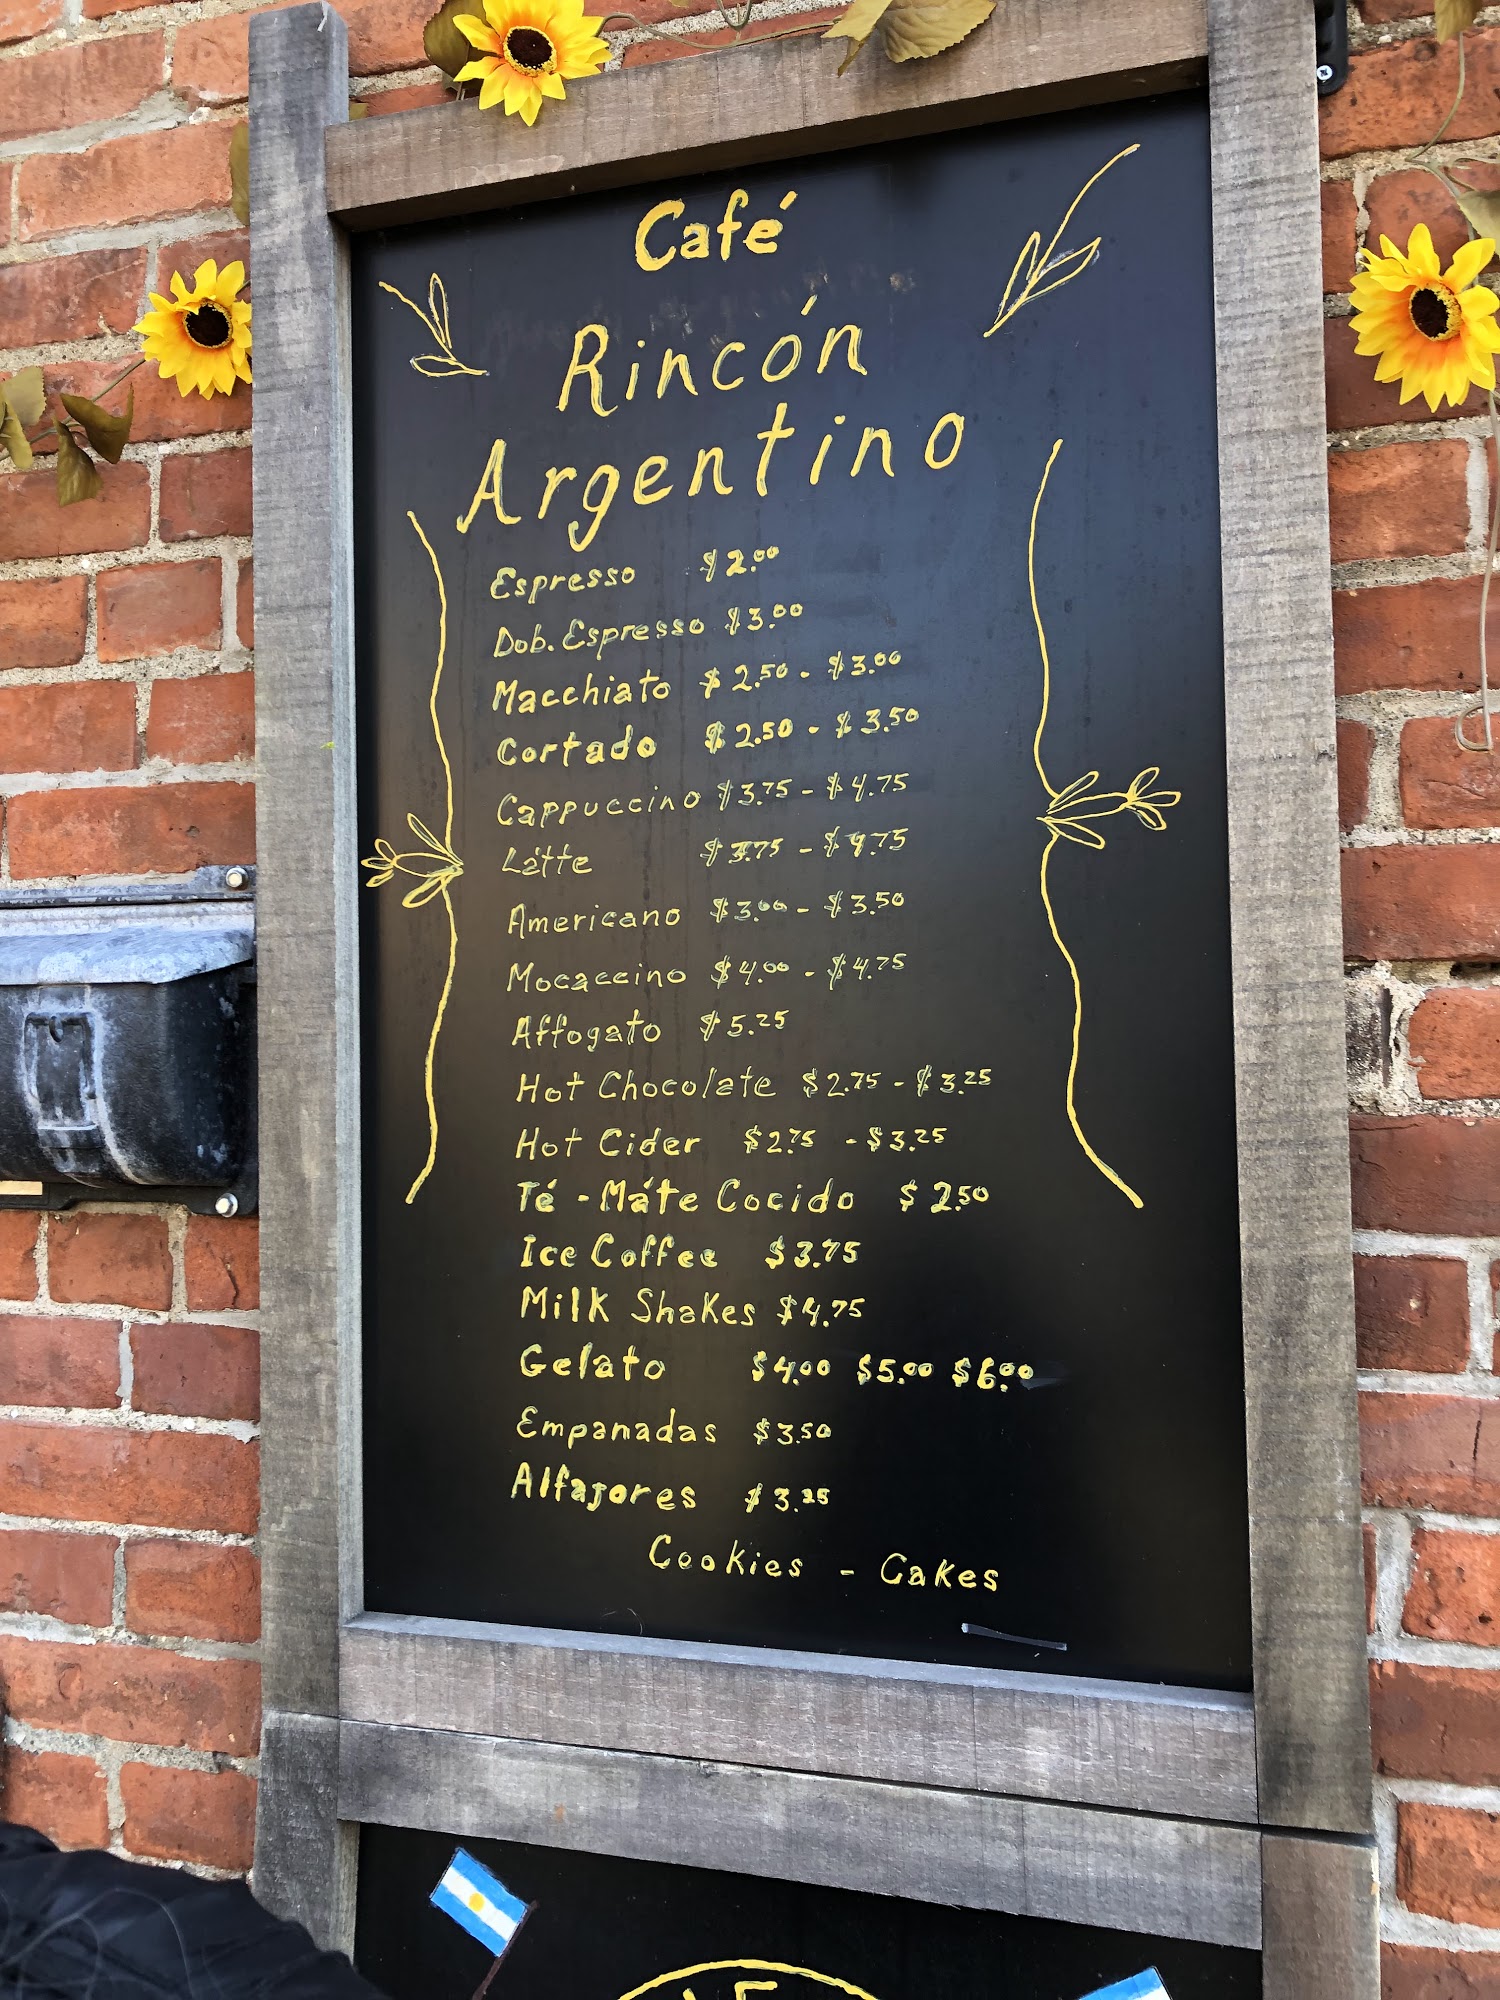 Café
Rincón
Argentino
Espresso $2.00
Dob. Espresso $3.00
Macchiato $2.50 - $3.00
Cortado $2.50 - $3.50
Cappuccino $3.75 - $4.75
Látte $3.75 - $4.75
Americano $3.00 - $3.50
Mocaccino $4.00 - $4.75
Affogato $5.25
Hot Chocolate $2.75 - $3.25
Hot Cider $2.75 - $3.25
Té - Máte Cocido $2.50
Ice Coffee $3.75
Milk Shakes $4.75
Gelato $4.00 $5.00 $6.00
Empanadas $3.50
Alfajores $3.25
Cookies - Cakes